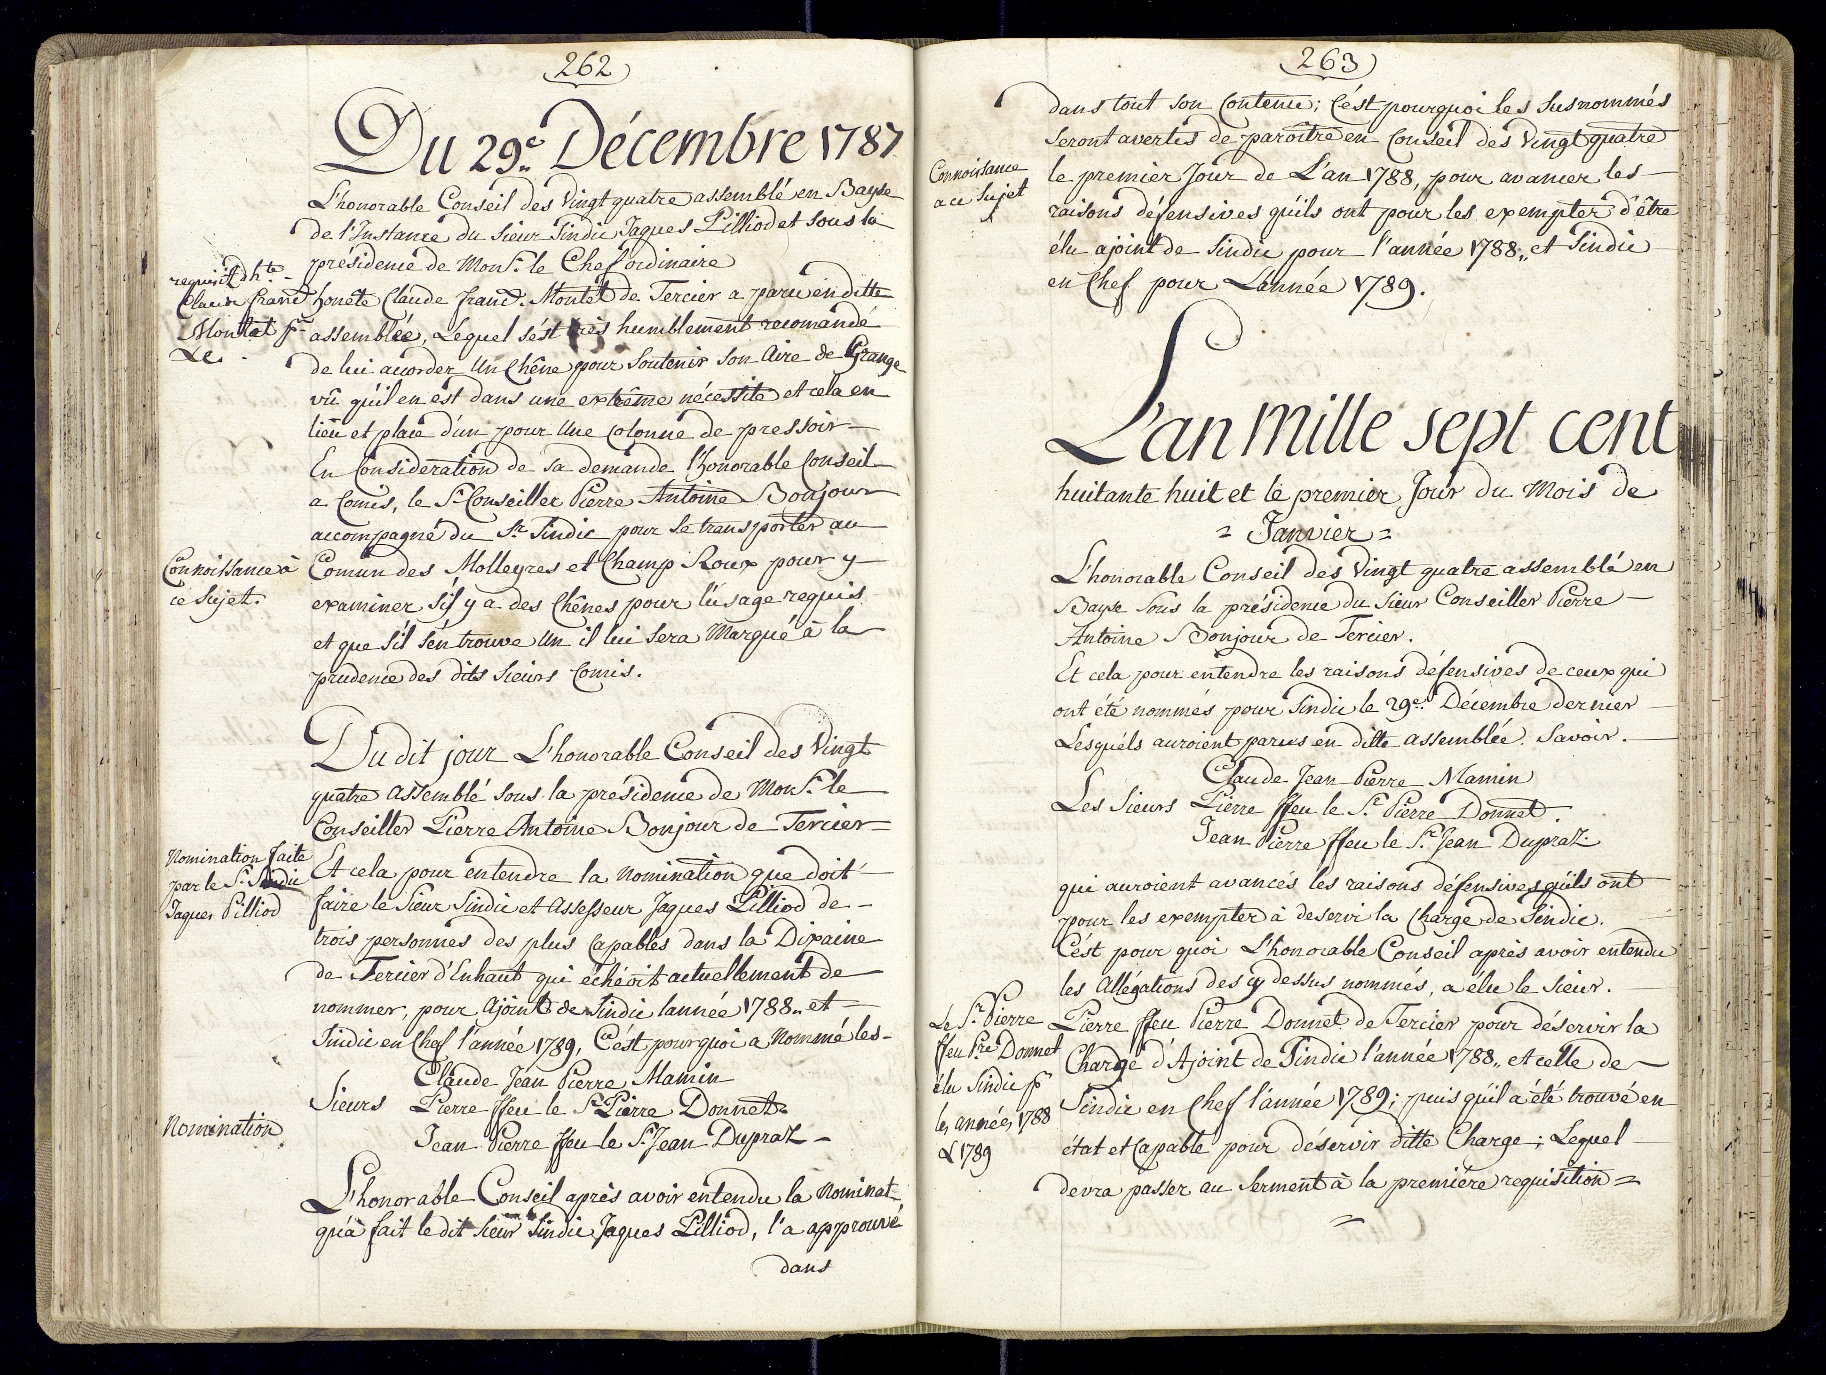 262
Du 29.e Décembre 1787
L'honorable Conseil des Vingt quatre assemblé en Bayse
de l'Instance du Sieur Sindic Jaques Pilliod et sous la
présidence de Mons.r le Chef ordinaire
requis dh.te
Claude Franç.
Montet p.r
honête Claude Franç. Montet de Tercier a paru en ditte
assemblée, Lequel s'ést très humblement recomandé
de lui accorder Un Chêne pour Soutenir Son Aire de Grange
vû qu'il en est dans une extrême nécessité et cela en
lieu et place d'un pour Une Colonne de pressoir —
En Considération de sa demande l'honorable Conseil
a Comis, le S.r Conseiller Pierre Antoine Bonjour
accompagné du S.r Sindic pour Se transporter au
Connoissance à
ce Sujet.
Comun des Molleyres et Champ Roux pour y
examiner s'il y a des Chênes pour l'usage requis
et que s'il s'én trouve Un il lui Sera Marqué à la
prudence des dits Sieurs Comis.
Du dit jour L'honorable Conseil des Vingt
quatre Assemblé sous la présidence de Mons.r le
Conseiller Pierre Antoine Bonjour de Tercier =
Nomination faite
par le S.r Sindic
Jaques Pilliod
Et cela pour entendre la Nomination que doit
faire le Sieur Sindic et Assesseur Jaques Pilliod de —
trois personnes des plus Capables dans la Dixaine
de Tercier d'Enhaut qui échéoit actuellement de
nommer, pour Ajoint de Sindic lannée 1788 „ et —
Sindic en Chef l'année 1789, C'ést pourquoi a Nommé les —
Claude Jean Pierre Mamin
Sieurs Pierre ffeu le S.r Pierre Donnet
Jean Pierre ffeu le S.r Jean Dupraz —
Nomination
L'honorable Conseil après avoir entendu la Nominat.
qu'a fait le dit Sieur Sindic Jaques Pilliod, l'a approuvé
dans
263
dans tout Son Contenu; C'ést pourquoi les Susnommés
Seront avertis de paroître en Conseil des Vingt quatre
Connoissance
a ce Sujet
le premier Jour de L'an 1788, pour avancer les —
raisons défensives qu'ils ont pour les exempter d'être
élu ajoint de Sindic pour l'année 1788 „ et Sindic
en Chef pour Lannée 1789.
L'an Mille sept cent
huitante huit et le premier Jour du Mois de
= Janvier =
L'honorable Conseil des Vingt quatre assemblé en
Bayse Sous la présidence du Sieur Conseiller Pierre —
Antoine Bonjour de Tercier.
Et cela pour entendre les raisons défensives de ceux qui
ont été nommés pour Sindic le 29.e Décembre dernier —
Lesquéls auroient parus en ditte assemblée. Savoir. —
Claude Jean Pierre Mamin
Les Sieurs Pierre ffeu le S.r Pierre Donnet.
Jean Pierre ffeu le S.r Jean Dupraz.
qui auroient avancés les raisons défensives qu'ils ont
pour les exempter à deservi la Charge de Sindic.
C'ést pour quoi L'honorable Conseil après avoir entendu
les Allégations des cy dessus nommés, a élu le Sieur. —
Le S.r Pierre
ffeu P.rre Donnet
élu Sindic p.r
les années 1788
& 1789
Pierre ffeu Pierre Donnet de Tercier pour déservir la
Charge d'Ajoint de Sindic l'année 1788 „ et celle de —
Sindic en Chef l'année 1789; puis qu'il a été trouvé en
état et Capable pour déservir ditte Charge; Lequel —
devra passer au Serment à la première requisition =
=